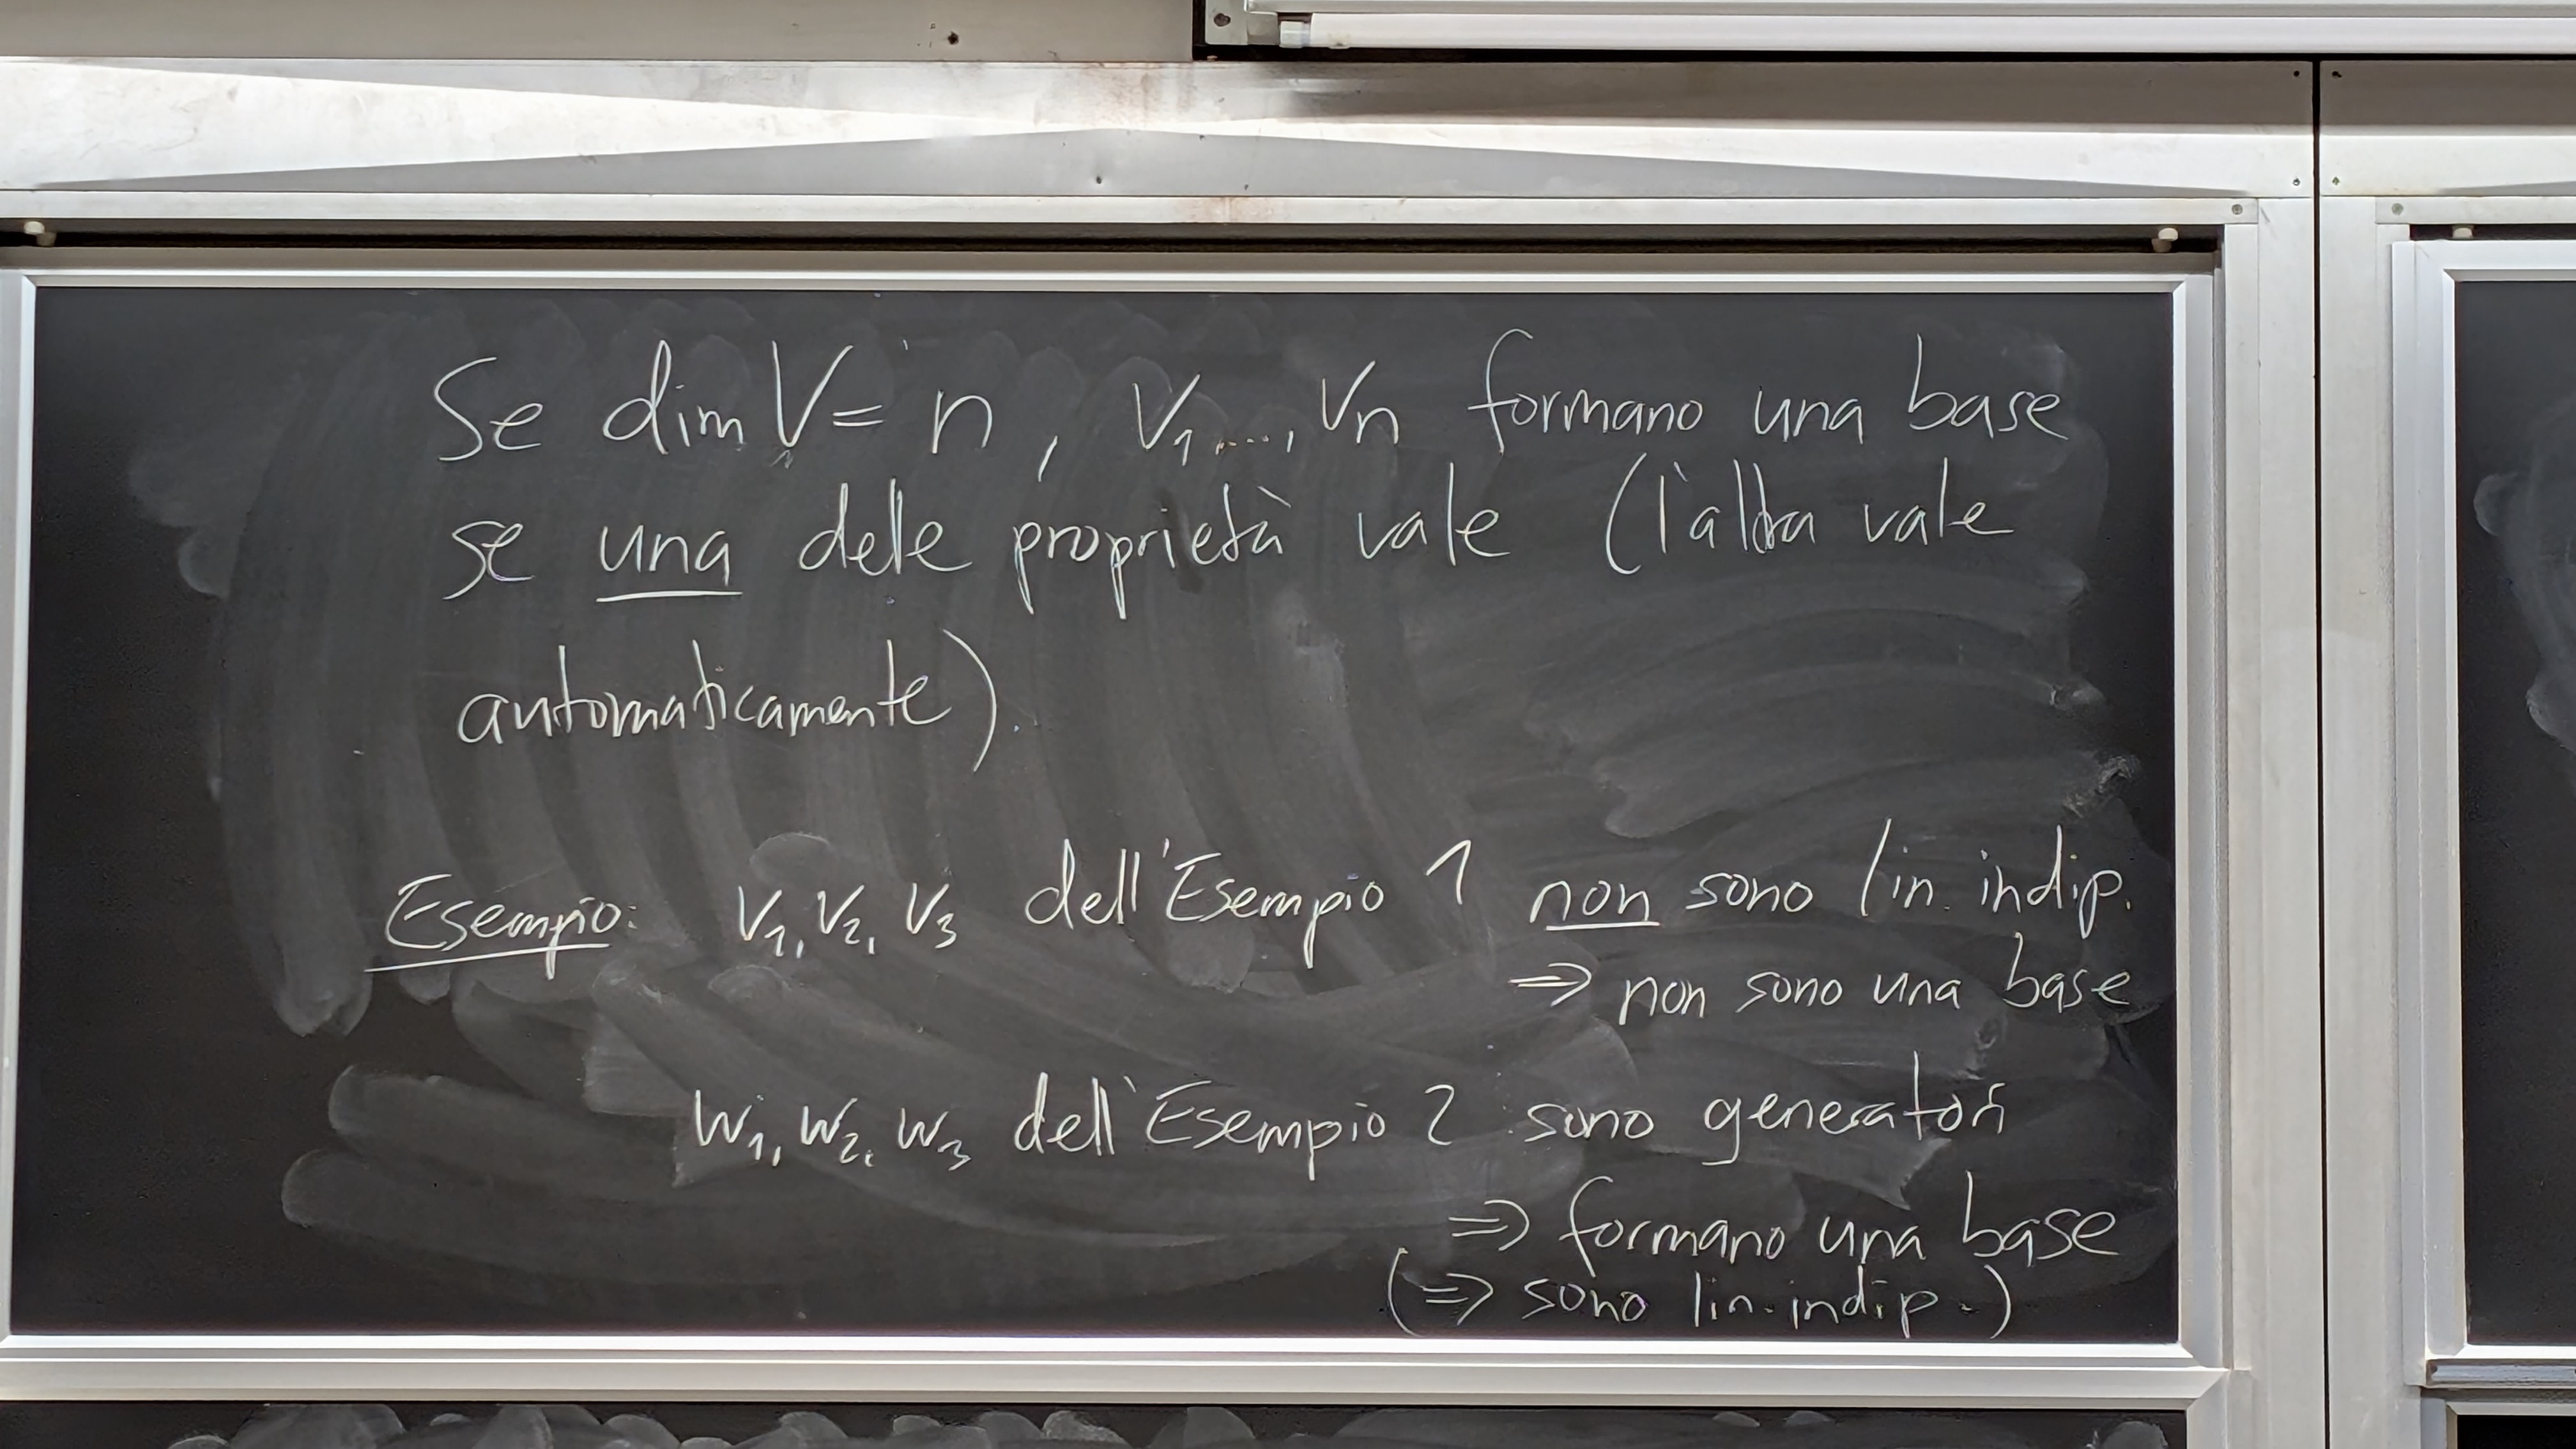 Se dim V = n, v₁, ..., vₙ formano una base
se una delle proprietà vale (l'altra vale
automaticamente).
Esempio: v₁, v₂, v₃ dell'Esempio 1 non sono lin. indip.
⇒ non sono una base
w₁, w₂, w₃ dell'Esempio 2 sono generatori
⇒ formano una base
(⇒ sono lin. indip.)